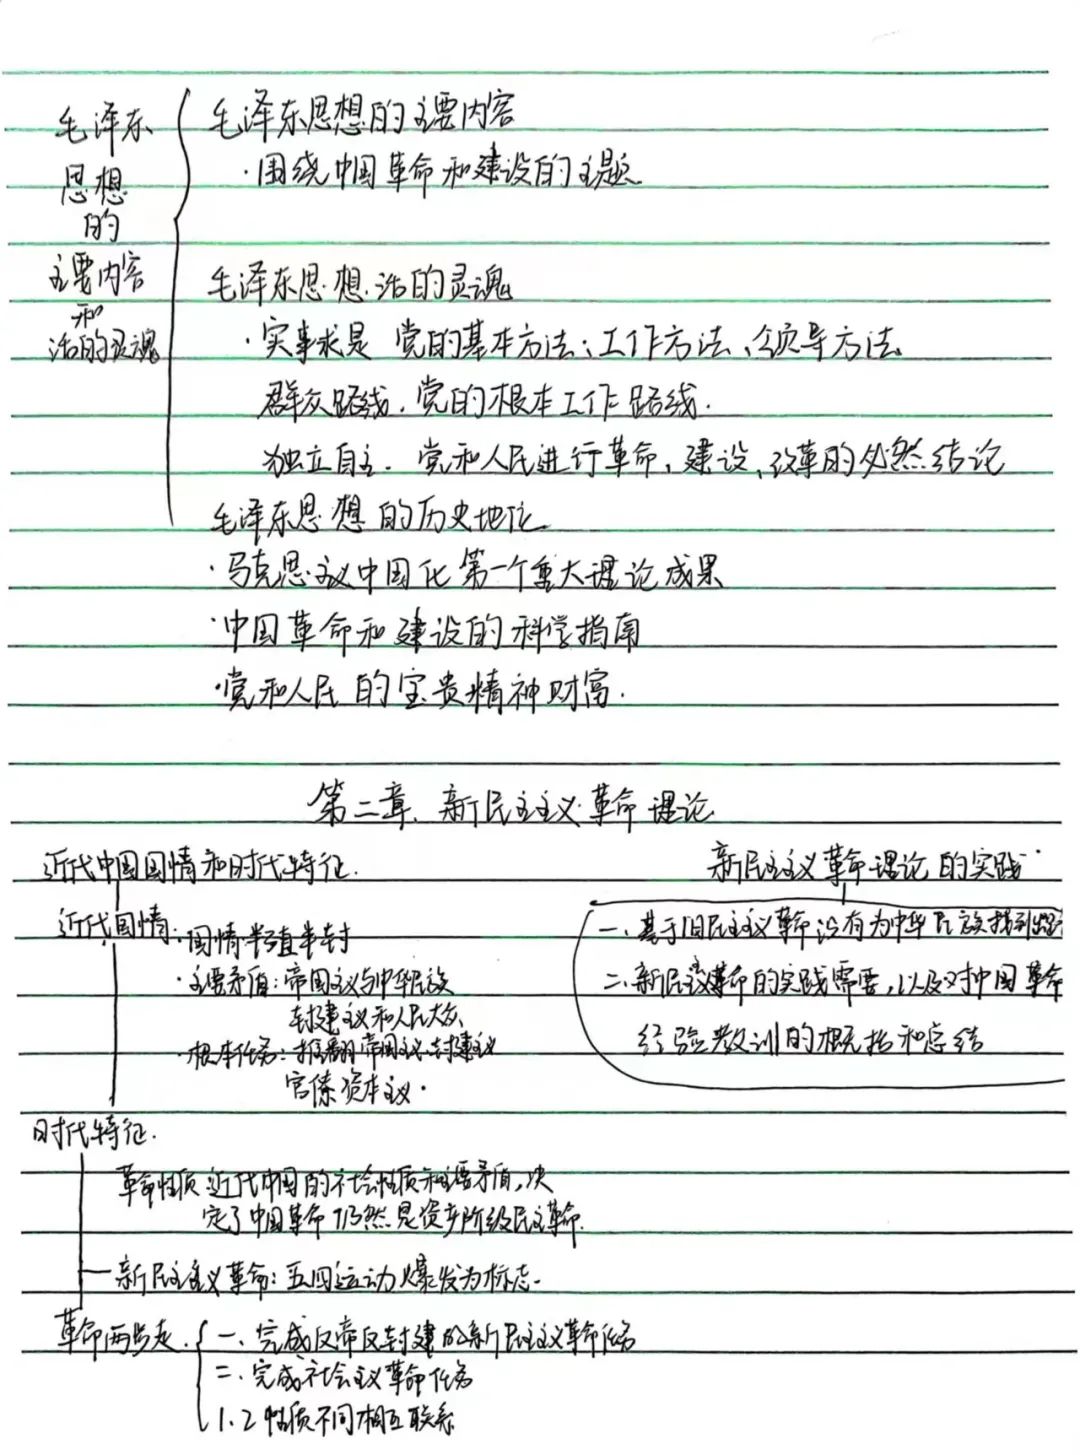 毛泽东
思想
的
主要内容
和
活的灵魂
毛泽东思想的主要内容
·围绕中国革命和建设的主题
毛泽东思想活的灵魂
·实事求是 党的基本方法;工作方法、领导方法
群众路线.党的根本工作路线.
独立自主.党和人民进行革命,建设、改革的必然结论
毛泽东思想的历史地位
·马克思主义中国化第一个重大理论成果
·中国革命和建设的科学指南
·党和人民的宝贵精神财富.
第二章.新民主主义革命理论
近代中国国情和时代特征.
近代国情
·国情半殖半封
·主要矛盾:帝国主义与中华民族
封建主义和人民大众
·根本任务:推翻帝国主义.封建主义
官僚资本主义.
新民主主义革命理论的实践
一、基于旧民主主义革命没有为中华民族找到
二、新民主主义革命的实践需要,以及对中国革命
经验教训的概括和总结
时代特征.
革命性质 近代中国的社会性质和主要矛盾,决
定了中国革命仍然是资产阶级民主革命.
新民主主义革命:五四运动爆发为标志.
革命两步走.
一.完成反帝反封建的新民主主义革命任务
二.完成社会主义革命任务
1、2性质不同相互联系